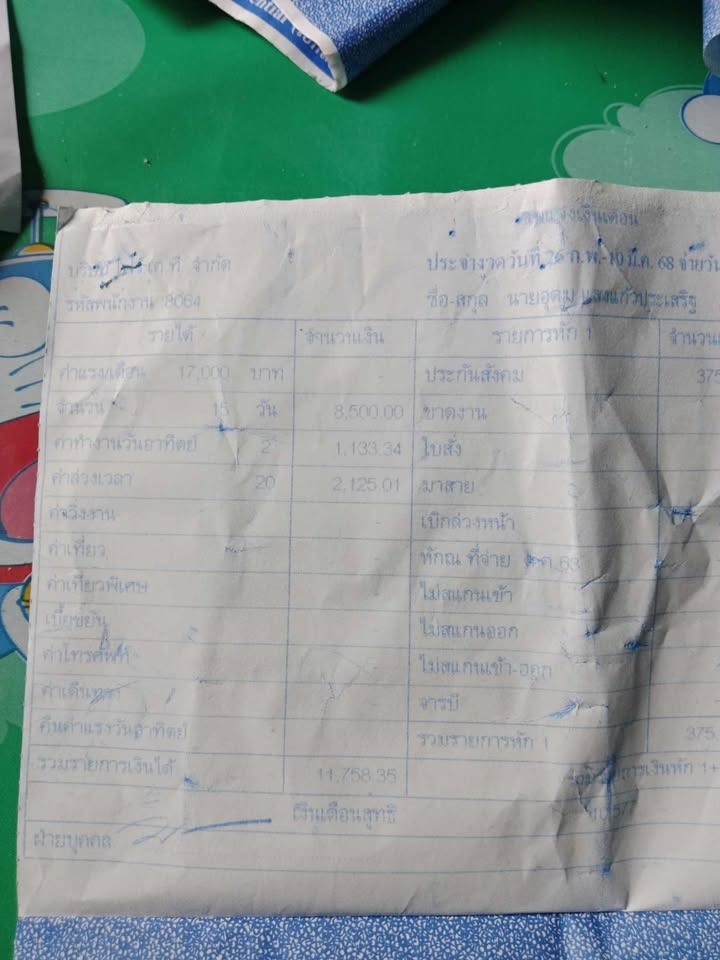 ใบแจ้งเงินเดือน
บริษัท จำกัด ประจำงวดวันที่ 26 ก.พ.-10 มี.ค. 68 จ่ายวัน
รหัสพนักงาน 8064 ชื่อ-สกุล นายอุดม แสงแก้วประเสริฐ
รายได้ จำนวนเงิน รายการหัก 1
ค่าแรง/เดือน 17,000 บาท ประกันสังคม 375
จำนวน 15 วัน 8,500.00 ขาดงาน
ค่าทำงานวันอาทิตย์ 2 1,133.34 ใบสั่ง
ค่าล่วงเวลา 20 2,125.01 มาสาย
ค่าวิ่งงาน เบิกล่วงหน้า
ค่าเที่ยว หักณ ที่จ่าย
ค่าเที่ยวพิเศษ ไม่สแกนเข้า
เบี้ยขยัน ไม่สแกนออก
ค่าโทรศัพท์ ไม่สแกนเข้า-ออก
ค่าเดินทาง จารบี
คืนค่าแรงวันอาทิตย์ รวมรายการหัก 1 375
รวมรายการเงินได้ 11,758.35 รวมรายการเงินหัก 1+
เงินเดือนสุทธิ
ฝ่ายบุคคล